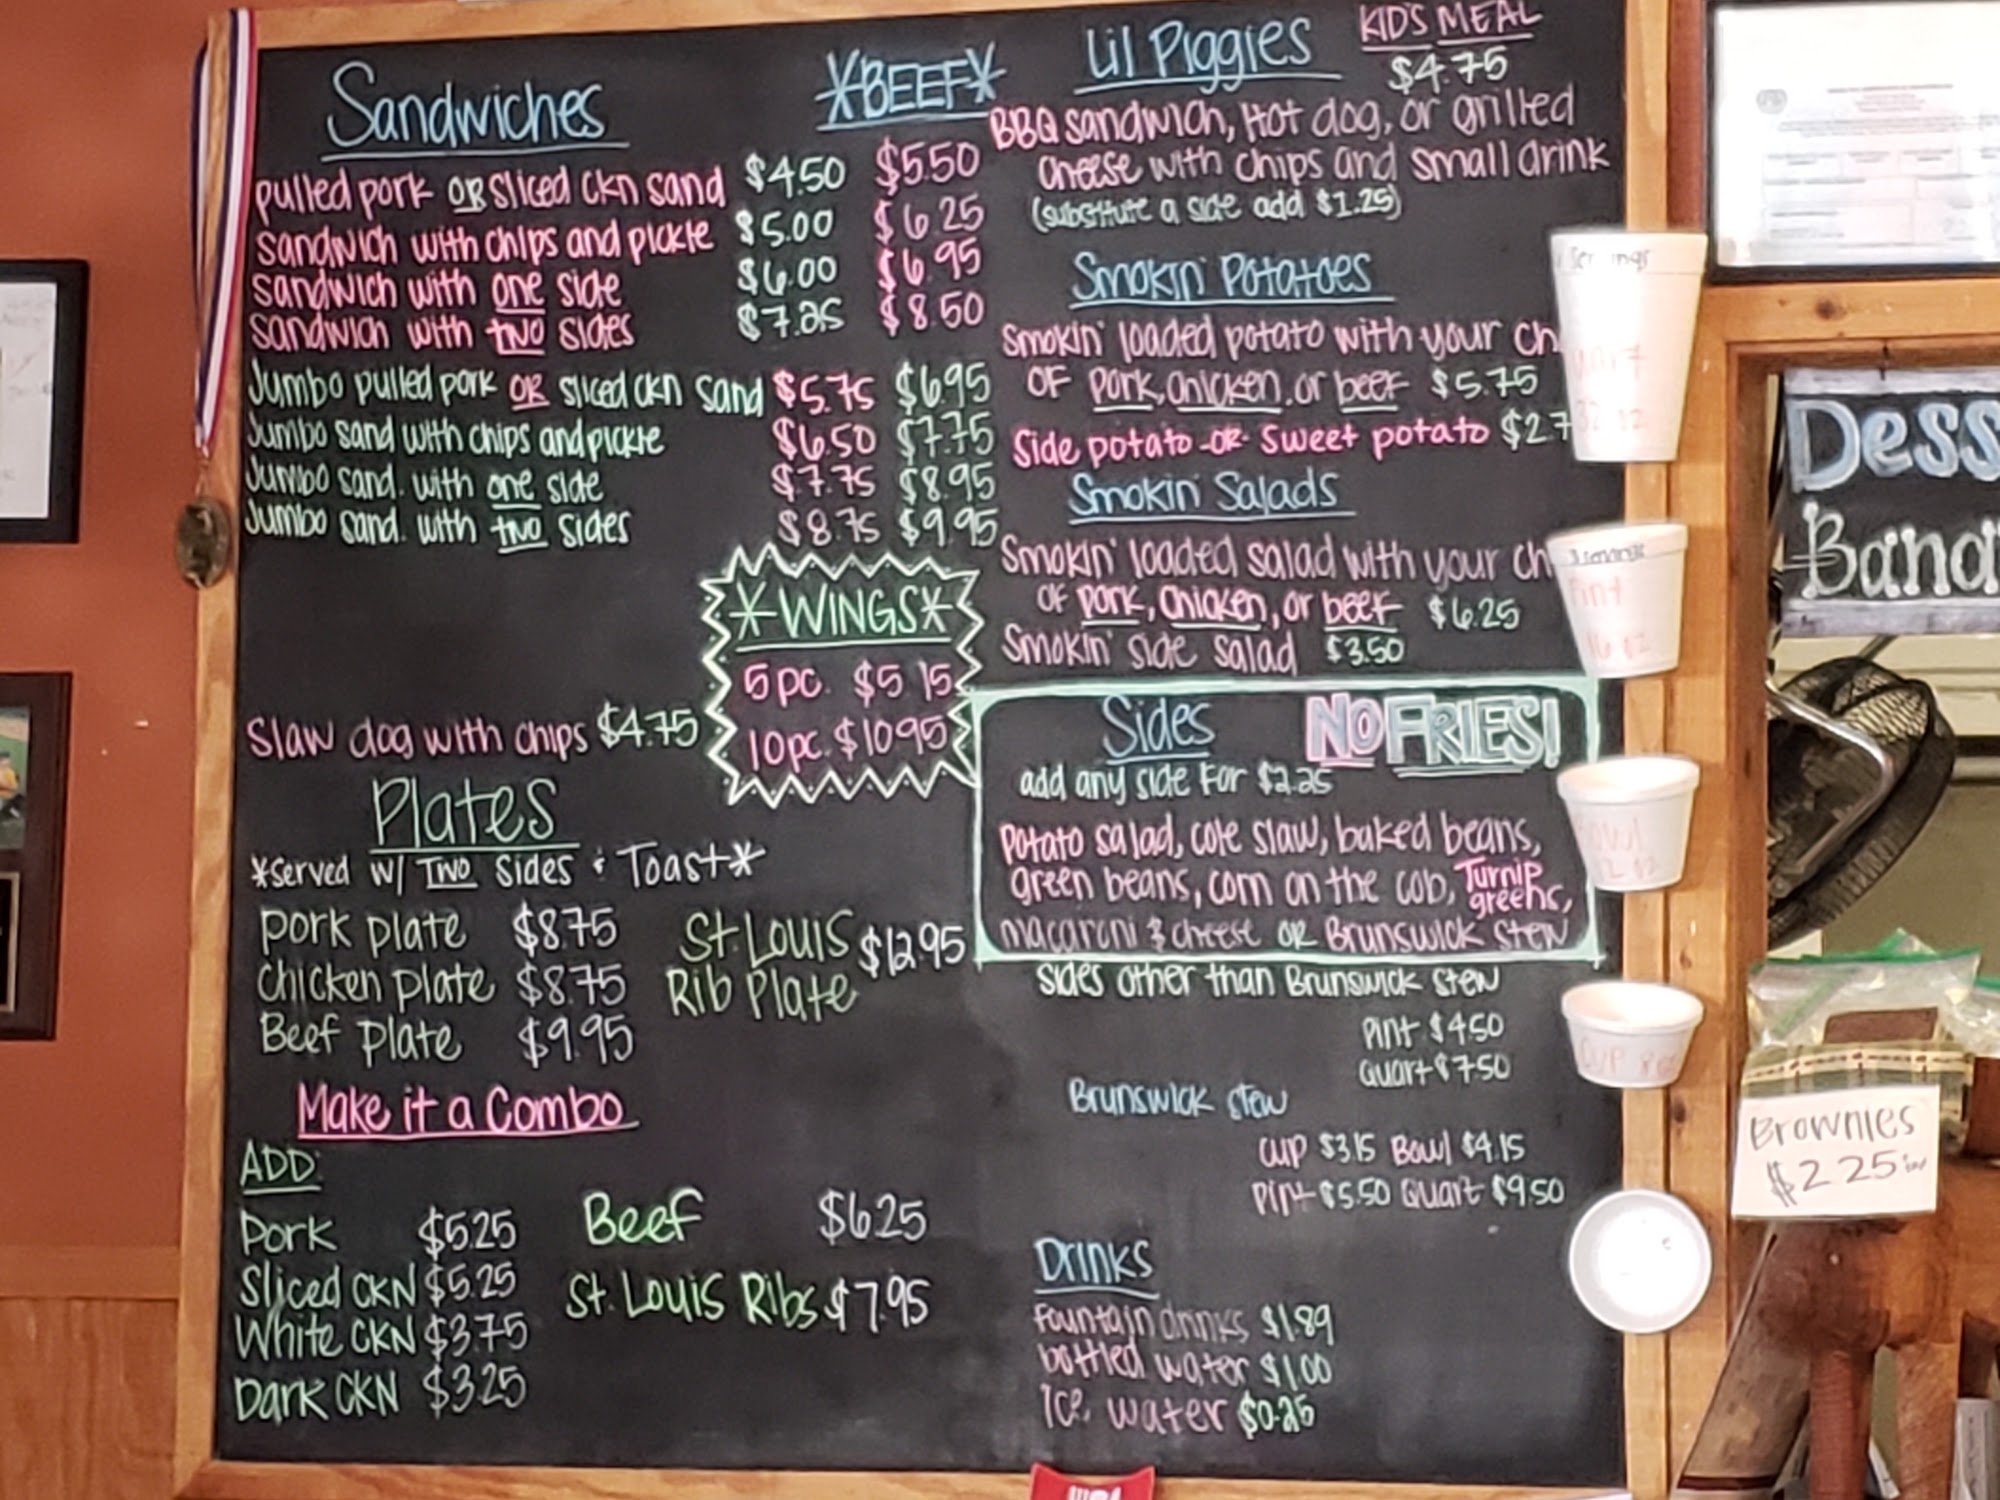 Sandwiches
*BEEF*
pulled pork OR sliced ckn sand $4.50 $5.50
sandwich with chips and pickle $5.00 $6.25
sandwich with one side $6.00 $6.95
sandwich with two sides $7.25 $8.50
Jumbo pulled pork OR sliced ckn sand $5.75 $6.95
Jumbo sand with chips and pickle $6.50 $7.75
Jumbo sand. with one side $7.75 $8.95
Jumbo sand. with two sides $8.75 $9.95
*WINGS*
5pc. $5 15
10pc. $10 95
Slaw dog with chips $4.75
Plates
*Served w/ Two Sides & Toast*
Pork plate $8.75
Chicken plate $8.75
Beef plate $9.95
St. Louis
Rib Plate $12.95
Make it a Combo
ADD:
Pork $5.25
Sliced CKN $5.25
White CKN $3.75
Dark CKN $3.25
Beef $6.25
St. Louis Ribs $7.95
Lil Piggies
KIDS MEAL
$4.75
BBQ sandwich, Hot dog, or grilled
cheese with chips and small drink
(substitute a side add $1.25)
Smokin' Potatoes
Smokin' loaded potato with your ch
of pork, chicken, or beef $5.75
Side potato -or- sweet potato $2.7
Smokin' Salads
Smokin' loaded salad with your ch
of pork, chicken, or beef $6.25
Smokin' side salad $3.50
Sides
NO FRIES!
add any side for $2.25
Potato salad, cole slaw, baked beans,
green beans, corn on the cob, Turnip greens,
macaroni & cheese or Brunswick stew
Sides other than Brunswick stew
Pint $4.50
Quart $7.50
Brunswick stew
cup $3.15 Bowl $4.15
Pint $5.50 Quart $9.50
Drinks
fountain drinks $1.89
bottled water $1.00
Ice water $0.25
Pint
16 oz
Bowl
Cup
Dess
Bana
Brownies
$2 25